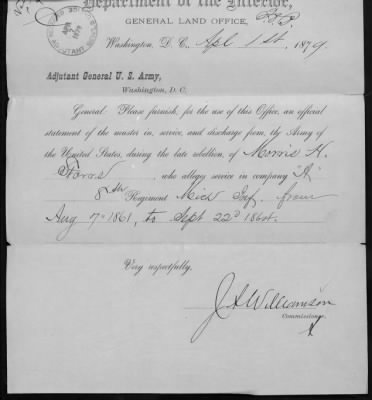 Department of the Interior,
GENERAL LAND OFFICE,
Washington, D. C., Apl 1st, 1879.
Adjutant General U. S. Army,
Washington, D. C.
General: Please furnish, for the use of this Office, an official
statement of the muster in, service, and discharge from, the Army of
the United States, during the late rebellion, of Morris H.
who alleges service in company "A"
8th Regiment Mich Inf. from
Aug 7th 1861, to Sept 22d 1864.
Very respectfully,
J A Williamson
Commissioner.